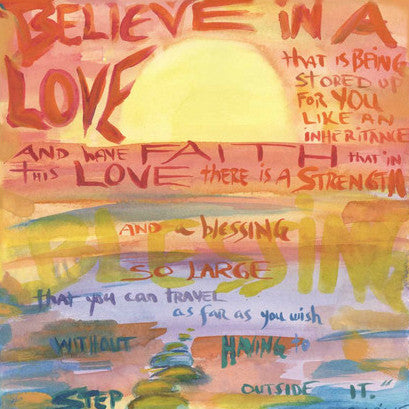 BELIEVE IN A
LOVE
THAT IS BEING
STORED UP
FOR YOU
LIKE AN
INHERITANCE
AND HAVE FAITH that in
THIS LOVE THERE IS A STRENGTH
AND a blessing
BLESSING
SO LARGE
that you can TRAVEL
as far as you wish
WITHOUT HAVING to
STEP OUTSIDE IT."